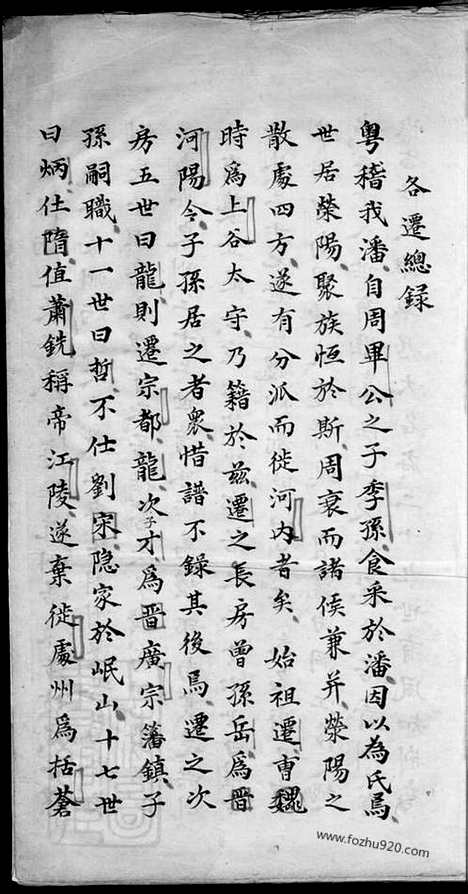 各遷總録
粵稽我潘自周畢公之子季孫食采於潘因以為氏焉
世居榮陽聚族恒於斯周衰而諸侯兼并滎陽之
散處四方遂有分派而徙河内者矣始祖遷曹魏
時爲上谷太守乃籍於兹遷之長房曾孫岳爲晋
河陽令子孫居之者衆惜譜不錄其後焉遷之次
房五世曰龍則遷宗都龍次子才爲晋廣宗藩鎮子
孫嗣職十一世曰哲不仕劉宋隐家於岷山十七世
曰炳仕隋值蕭銑稱帝江陵遂棄徙處州爲括蒼
www.fozhu920.com